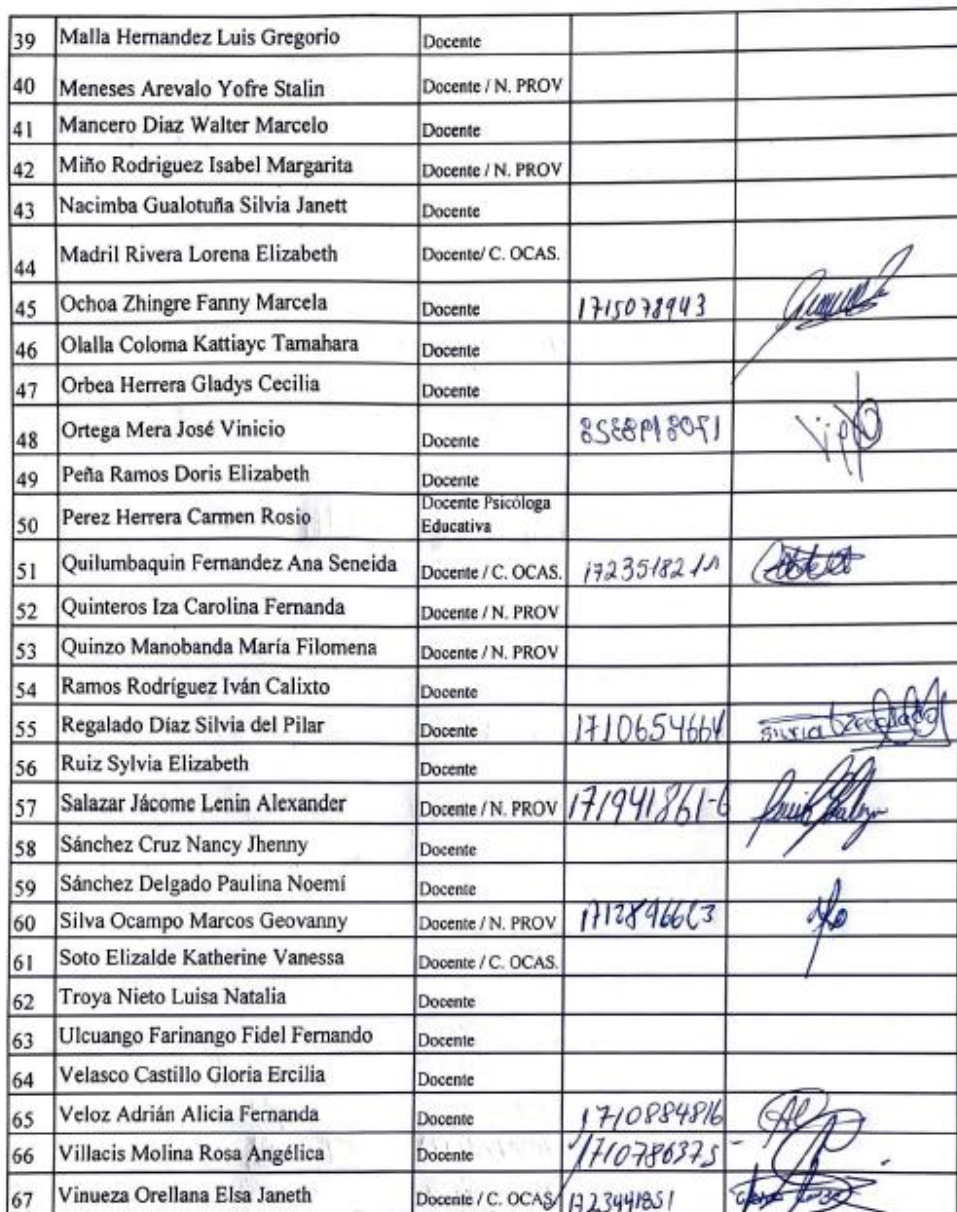 39 Malla Hernandez Luis Gregorio Docente
40 Meneses Arevalo Yofre Stalin Docente / N. PROV
41 Mancero Diaz Walter Marcelo Docente
42 Miño Rodriguez Isabel Margarita Docente / N. PROV
43 Nacimba Gualotuña Silvia Janett Docente
44 Madril Rivera Lorena Elizabeth Docente/ C. OCAS.
45 Ochoa Zhingre Fanny Marcela Docente 1715078943
46 Olalla Coloma Kattiayc Tamahara Docente
47 Orbea Herrera Gladys Cecilia Docente
48 Ortega Mera José Vinicio Docente
49 Peña Ramos Doris Elizabeth Docente
50 Perez Herrera Carmen Rosio Docente Psicóloga
Educativa
51 Quilumbaquin Fernandez Ana Seneida Docente / C. OCAS.
52 Quinteros Iza Carolina Fernanda Docente / N. PROV
53 Quinzo Manobanda María Filomena Docente / N. PROV
54 Ramos Rodríguez Iván Calixto Docente
55 Regalado Díaz Silvia del Pilar Docente 1710654664 Silvia Regalado
56 Ruiz Sylvia Elizabeth Docente
57 Salazar Jácome Lenin Alexander Docente / N. PROV 171941861-6
58 Sánchez Cruz Nancy Jhenny Docente
59 Sánchez Delgado Paulina Noemí Docente
60 Silva Ocampo Marcos Geovanny Docente / N. PROV
61 Soto Elizalde Katherine Vanessa Docente / C. OCAS.
62 Troya Nieto Luisa Natalia Docente
63 Ulcuango Farinango Fidel Fernando Docente
64 Velasco Castillo Gloria Ercilia Docente
65 Veloz Adrián Alicia Fernanda Docente 1710884816
66 Villacis Molina Rosa Angélica Docente 1710786375
67 Vinueza Orellana Elsa Janeth Docente / C. OCAS 1723441851